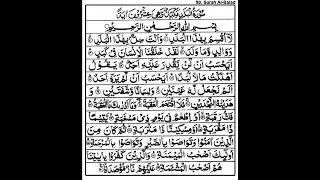 90. Surah Al-Balad
سُورَةُ الْبَلَدِ مَكِّيَّةٌ وَهِيَ عِشْرُونَ آيَةً
بِسْمِ اللهِ الرَّحْمٰنِ الرَّحِيْمِ
لَآ اُقْسِمُ بِهٰذَا الْبَلَدِ ۙ وَاَنْتَ حِلٌّۢ بِهٰذَا الْبَلَدِ ۙ
وَوَالِدٍ وَّمَا وَلَدَ ۙ لَقَدْ خَلَقْنَا الْاِنْسَانَ فِيْ كَبَدٍ ؕ
اَيَحْسَبُ اَنْ لَّنْ يَّقْدِرَ عَلَيْهِ اَحَدٌ ۘ يَقُوْلُ
اَهْلَكْتُ مَالًا لُّبَدًا ؕ اَيَحْسَبُ اَنْ لَّمْ يَرَهٗٓ اَحَدٌ ؕ
اَلَمْ نَجْعَلْ لَّهٗ عَيْنَيْنِ ۙ وَلِسَانًا وَّشَفَتَيْنِ ۙ وَ
هَدَيْنٰهُ النَّجْدَيْنِ ۚ فَلَا اقْتَحَمَ الْعَقَبَةَ ۖ وَمَآ اَدْرٰىكَ
مَا الْعَقَبَةُ ؕ فَكُّ رَقَبَةٍ ۙ اَوْ اِطْعٰمٌ فِيْ يَوْمٍ ذِيْ مَسْغَبَةٍ ۙ يَّتِيْمًا
ذَا مَقْرَبَةٍ ۙ اَوْ مِسْكِيْنًا ذَا مَتْرَبَةٍ ؕ ثُمَّ كَانَ مِنَ
الَّذِيْنَ اٰمَنُوْا وَتَوَاصَوْا بِالصَّبْرِ وَتَوَاصَوْا بِالْمَرْحَمَةِ ؕ
اُولٰٓئِكَ اَصْحٰبُ الْمَيْمَنَةِ ؕ وَالَّذِيْنَ كَفَرُوْا بِاٰيٰتِنَا
هُمْ اَصْحٰبُ الْمَشْـَٔمَةِ ؕ عَلَيْهِمْ نَارٌ مُّؤْصَدَةٌ